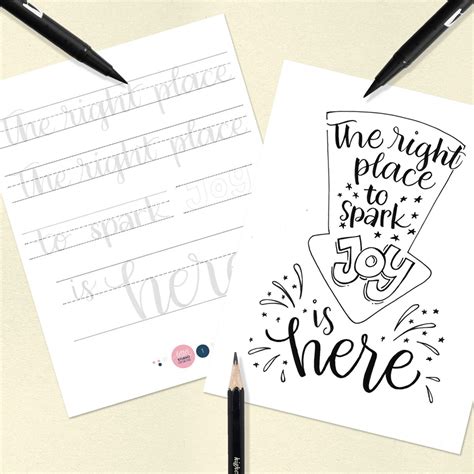 The right place
The right place
to spark JOY
is here
The right
place
to
spark
JOY
is
here